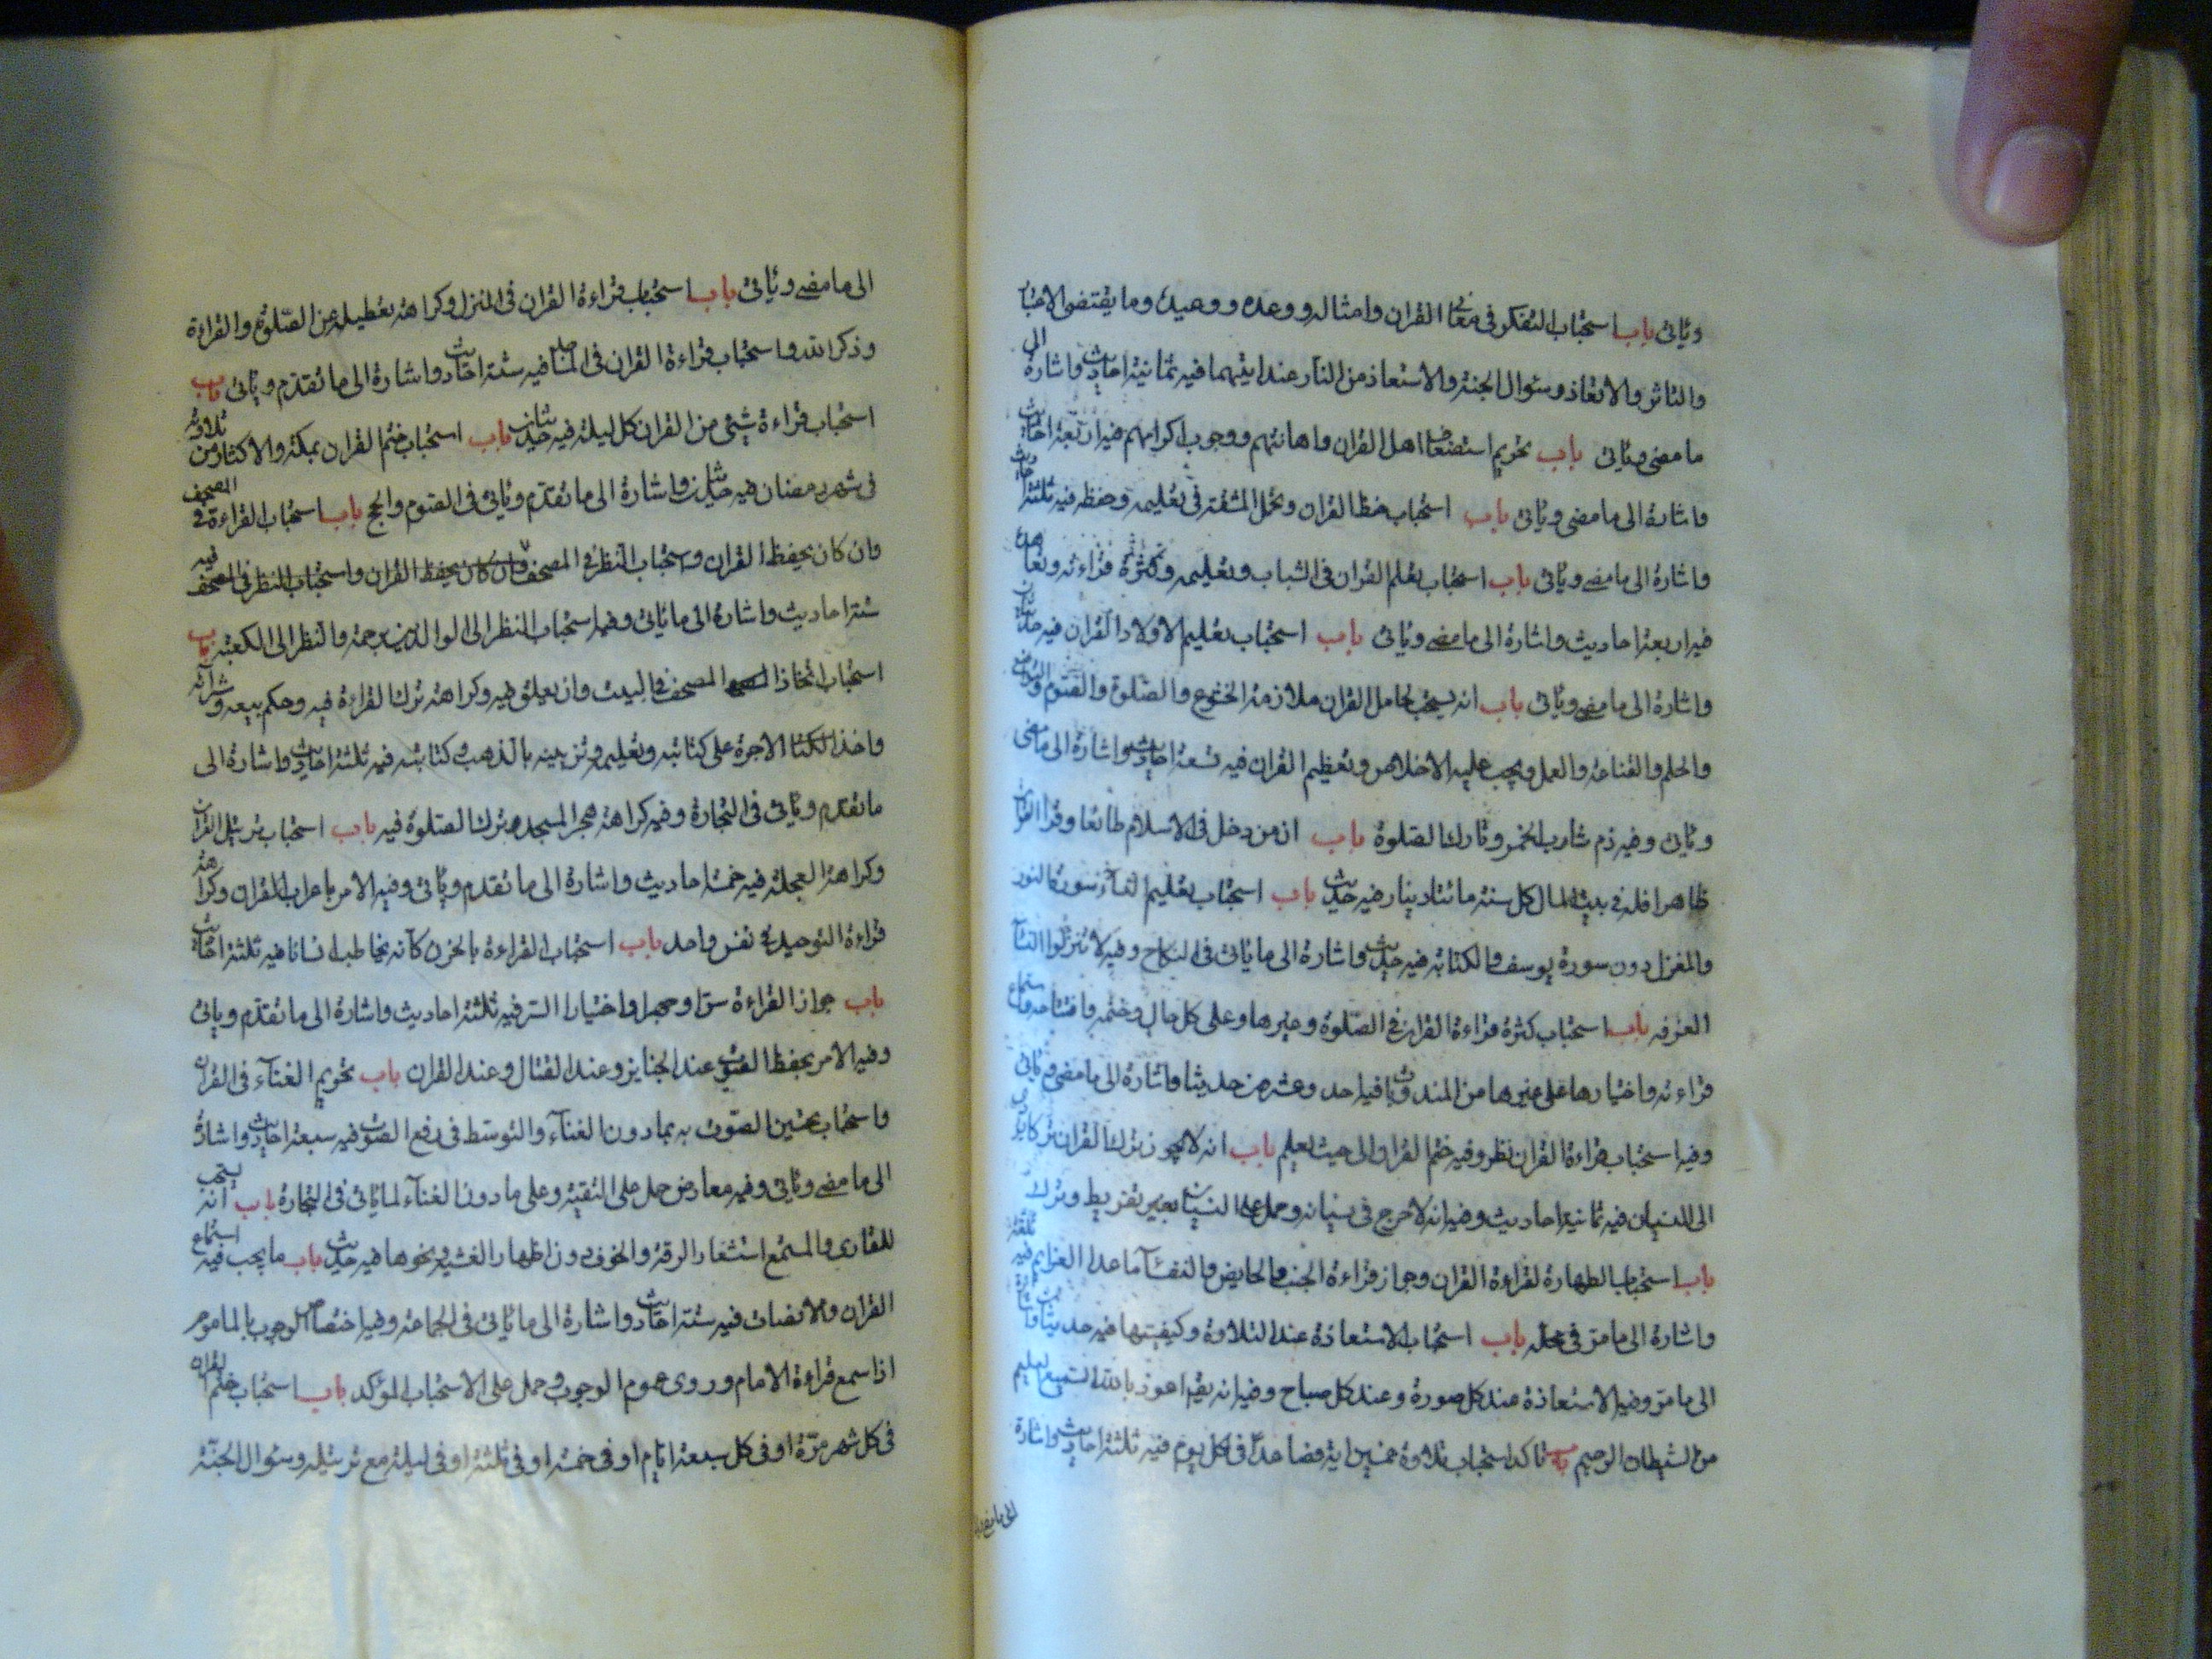 ويأتى باب استحباب التفكر فى معانى القران وامثاله ووعده ووعيده وما يقتضى الاعتبار
والتاثر والاتعاظ وسئوال الجنة والاستعاذة من النار عند ايتهما فيه ثمانية احاديث واشارة الى
ما مضى وياتى باب تحريم استضعاف اهل القران واهانتهم ووجوب اكرامهم فيه اربعة احاديث
واشارة الى ما مضى وياتى باب استحباب حفظ القران وتحمل المشقة فى تعليمه وحفظه فيه ثلثة احاديث
واشارة الى ما مضى وياتى باب استحباب تعلم القران فى الشباب وتعليمه وكثرة قراءته وتعاهده
فيه اربعة احاديث واشارة الى ما مضى وياتى باب استحباب تعليم الاولاد القران فيه حديثان
واشارة الى ما مضى وياتى باب انه يستحب لحامل القران ملازمة الخشوع والصلوة والصوم والتواضع
والحلم والقناعة والعمل ويجب عليه الاخلاص وتعظيم القران فيه تسعة احاديث واشارة الى ما مضى
وياتى وفيه ذم شارب الخمر وتارك الصلوة باب ان من دخل فى الاسلام طائعا وقرأ القران
ظاهرا فله فى بيت المال كل سنة مائتا دينار فيه حديث باب استحباب تعليم النساء سورة النور
والمغزل دون سورة يوسف والكتابة فيه حديث واشارة الى ما ياتى فى النكاح وفيه لا تنزلوا النساء
الغرفه باب استحباب كثرة قراءة القران فى الصلوة وغيرها وعلى كل حال وختمه وافتتاحه واستماع
قراءته واختيارها على غيرها من المندوبات فيه احد وعشرون حديثا واشارة الى ما مضى وياتى
وفيه استحباب قراءة القران نظر وفيه ختم القران الى حيث يعلم باب انه لا يجوز ترك القران تركا يؤدى
الى النسيان فيه ثمانية احاديث وفيه انه لا حرج فى نسيانه وحمل على النسيان بغير تفريط وترك
باب استحباب الطهارة لقراءة القران وجواز قراءة الجنب والحايض والنفسآ ما عدا العزايم فيه ثلثة
واشارة الى ما مرّ فى محله باب استحباب الاستعاذة عند التلاوة وكيفيتها فيه حديثان واشارة
الى ما مرّ وفيه الاستعاذة عند كل صورة وعند كل صباح وفيه انه يقم اعوذ بالله السميع العليم
من الشيطان الرجيم باب تاكد استحباب تلاوة خمسين اية فصاعدًا فى كل يوم فيه ثلثة احاديث واشارة
الى ما مضى
الى ما مضى وياتى باب استحباب قراءة القران فى المنزل وكراهة تعطيله عن الصلوة والقراءة
وذكر الله واستحباب قراءة القران فى المساجد فيه ستة احاديث واشارة الى ما تقدم وياتى باب
استحباب قراءة شئ من القران كل ليلة فيه حديثان باب استحباب ختم القران بمكة والاكثار من تلاوته
فى شهر رمضان فيه حديثان واشارة الى ما تقدم وياتى فى الصوم والحج باب استحباب القراءة فى المصحف
وان كان يحفظ القران واستحباب النظر فى المصحف وان كان يحفظ القران واستحباب النظر فى المصحف فيه
ستة احاديث واشارة الى ما ياتى وفيه استحباب النظر الى الوالدين برحمة والنظر الى الكعبة باب
استحباب اتخاذ المصحف فى البيت وان يعلق فيه وكراهة ترك القراءة فيه وحكم بيعه وشرائه
واخذ الاجرة على كتابته وتعليمه وتزيينه بالذهب وكتابته فيه ثلثة احاديث واشارة الى
ما تقدم وياتى فى التجارة وفيه كراهة هجر المسجد بترك الصلوة فيه باب استحباب ترتيل القران
وكراهة العجلة فيه خمسة احاديث واشارة الى ما تقدم وياتى وفيه الامر باعراب القران وكراهة
قراءة التوحيد فى نفس واحد باب استحباب القراءة بالحزن كانه يخاطب انسانا فيه ثلثة احاديث
باب جواز القراءة سرّا وجهرا واختيار السر فيه ثلثة احاديث واشارة الى ما تقدم وياتى
وفيه الامر بخفض الصوت عند الجنايز وعند القتال وعند القران باب تحريم الغنآء فى القران
واستحباب تحسين الصوت به بما دون الغنآء والتوسط فى رفع الصوت فيه سبعة احاديث واشارة
الى ما مضى وياتى وفيه معارض حمل على التقية وعلى ما دون الغنآء لما ياتى فى التجارة باب انه يستحب
للقارى والمستمع استشعار الرقة والخوف دون اظهار الغشية ونحوها فيه حديث باب ما يجب فيه استماع
القران والانصات فيه ستة احاديث واشارة الى ما ياتى فى الجماعة وفيه اختصاص الوجوب بالماموم
اذا سمع قراءة الامام وروى عموم الوجوب وحمل على الاستحباب المؤكد باب استحباب ختم القران
فى كل شهر مرّة او فى كل سبعة ايام او فى خمسة او فى ثلثة او فى ليلة مع ترتيله وسئوال الجنّة